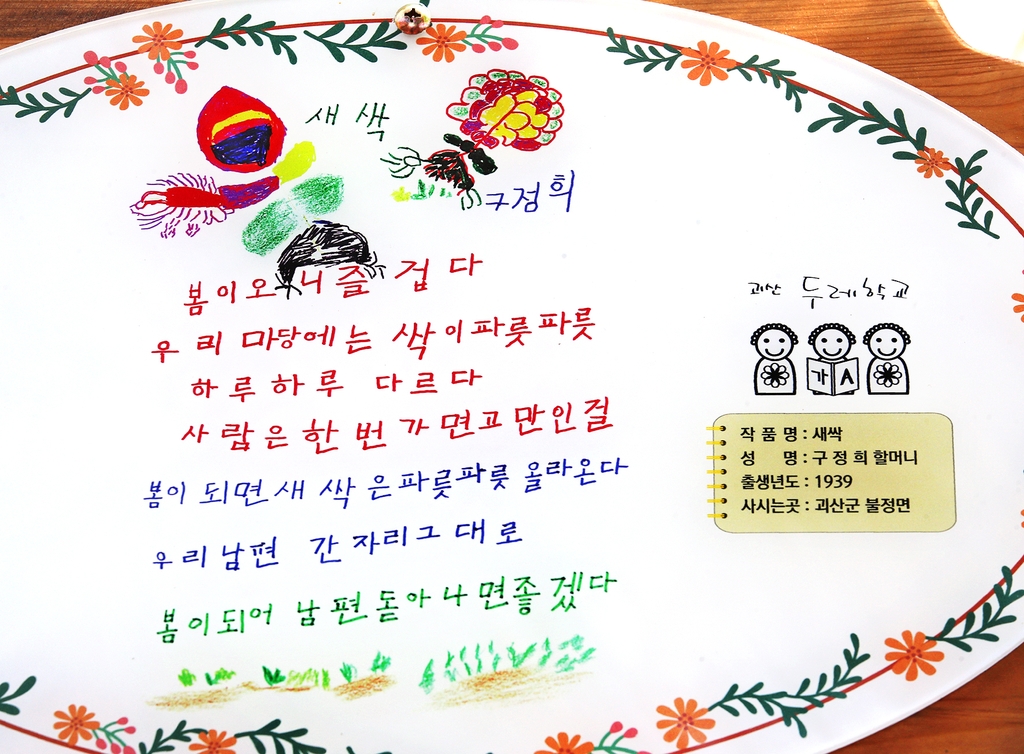 새싹
구점희
봄이오니즐겁다
우리 마당에는 싹이파릇파릇
하루하루 다르다
사람은 한번가면고만인걸
봄이 되면새싹은파릇파릇 올라온다
우리남편 간자리그대로
봄이되어 남편돋아나면좋겠다
괴산 두레학교
가 A
작 품 명 : 새싹
성 명 : 구 정 희 할머니
출생년도 : 1939
사시는곳 : 괴산군 불정면